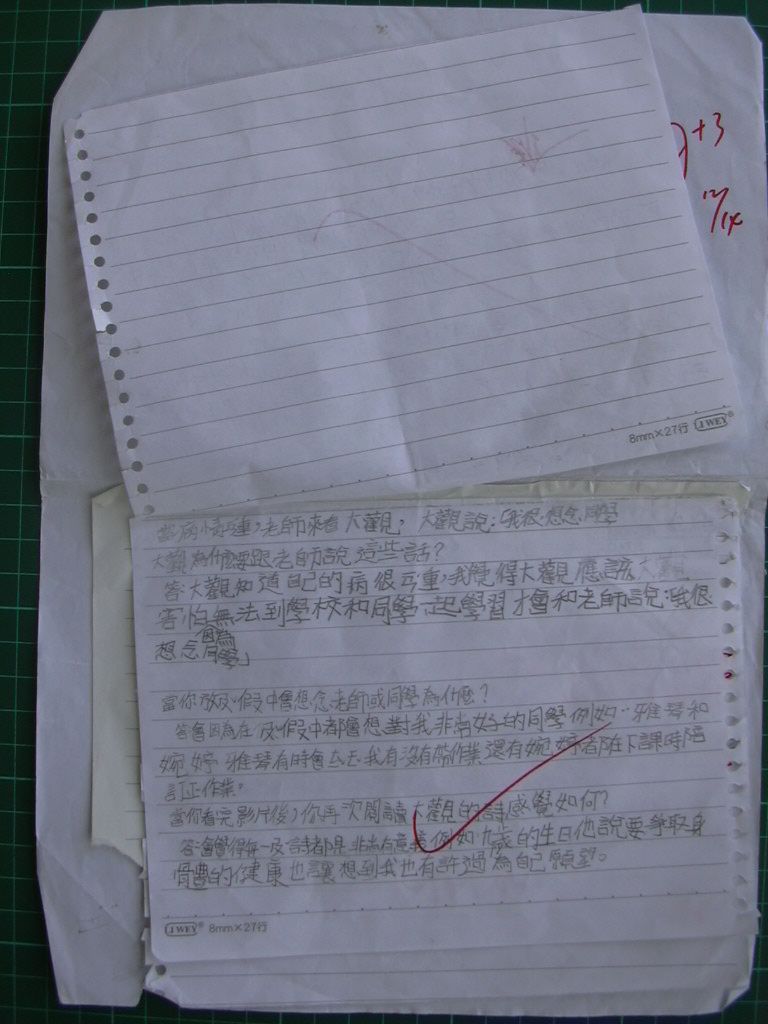 +3
12/14
8mm×27行 J WEY®
當病情嚴重,老師來看大觀,大觀說:「我很想念同學
大觀為什麼要跟老師說這些話?
答:大觀知道自己的病很嚴重,我覺得大觀應該大觀
害怕無法到學校和同學一起學習才會和老師說:「我很
想念同學」
因為
當你放假中會想念老師或同學為什麼?
答會因為在放假中都會想對我非常好的同學例如:雅琴和
婉婷雅琴有時會去我有沒有帶作業還有婉婷都在下課時陪
訂正作業。
當你看完影片後,你再次閱讀大觀的詩感覺如何?
答:會覺得每一段詩都是非常有意義例如九歲的生日他說要爭取身
體的健康也讓想到我也有許過為自己願望。
J WEY® 8mm×27行